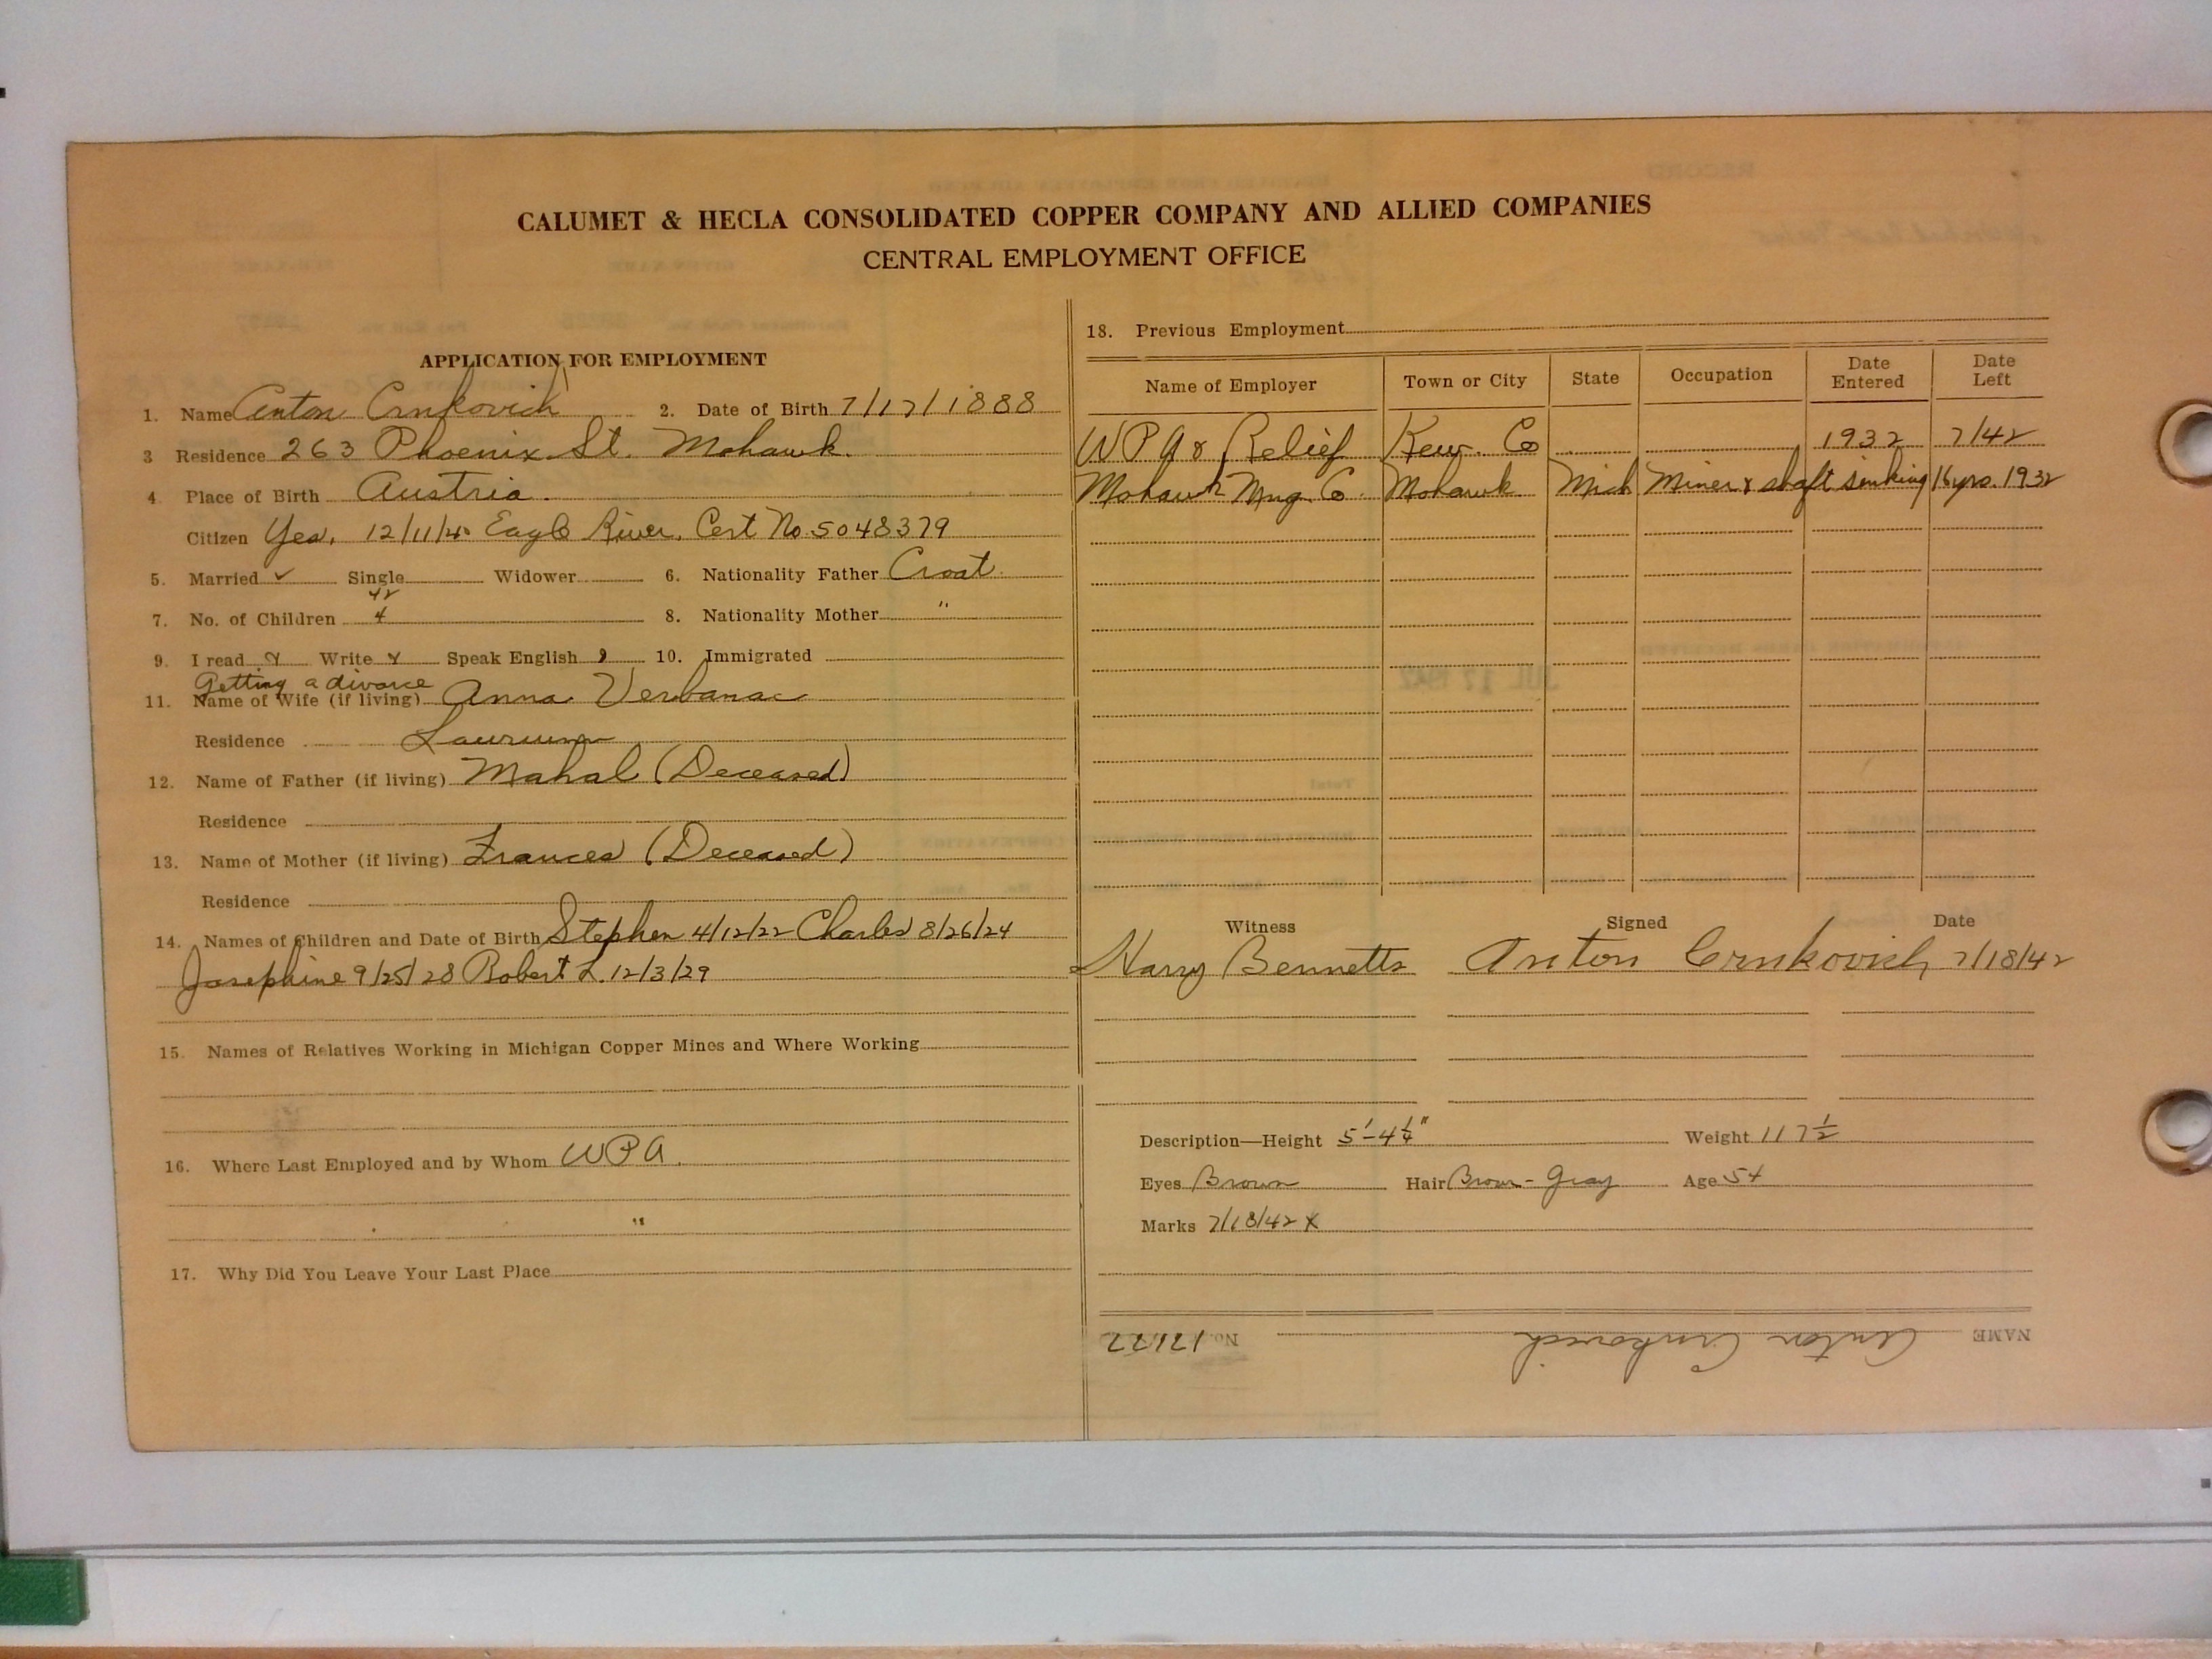 CALUMET & HECLA CONSOLIDATED COPPER COMPANY AND ALLIED COMPANIES
CENTRAL EMPLOYMENT OFFICE
APPLICATION FOR EMPLOYMENT
1. Name Anton Crnkovich 2. Date of Birth 7/17/1888
3 Residence 263 Phoenix St. Mohawk.
4. Place of Birth Austria.
Citizen Yes. 12/11/40 Eagle River. Cert No. 5048379
5. Married ✓ Single Widower 6. Nationality Father Croat
7. No. of Children 4 8. Nationality Mother "
9. I read Write Speak English 10. Immigrated
Getting a divorce
11. Name of Wife (if living) Anna Verbanac
Residence Laurium
12. Name of Father (if living) Mahal (Deceased)
Residence
13. Name of Mother (if living) Frances (Deceased)
Residence
14. Names of Children and Date of Birth Stephen 4/12/22 Charles 8/26/24
Josephine 9/25/28 Robert L. 12/3/29
15. Names of Relatives Working in Michigan Copper Mines and Where Working
16. Where Last Employed and by Whom WPA.
"
17. Why Did You Leave Your Last Place
18. Previous Employment
Name of Employer Town or City State Occupation Date Entered Date Left
WPA & Relief Kew. Co 1932 7/42
Mohawk Mng. Co. Mohawk Mich Miner & shaft sinking 16 yrs. 1932
Witness Signed Date
Harry Bennetts Anton Crnkovich 7/18/42
Description—Height 5'-4¼" Weight 117½
Eyes Brown Hair Brown-Gray Age 54
Marks 7/18/42 X
NAME Anton Crnkovich No. 17177